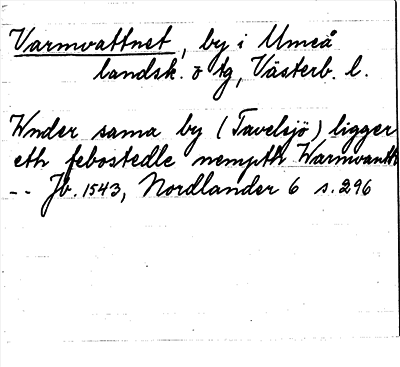 Varmvattnet, by i Umeå
landsk. o tg, Västerb. l.
Wnder sama by (Tavelsjö) ligger
eth febostedle nempth Warmvanth
-- Jb. 1543, Nordlander 6 s. 296